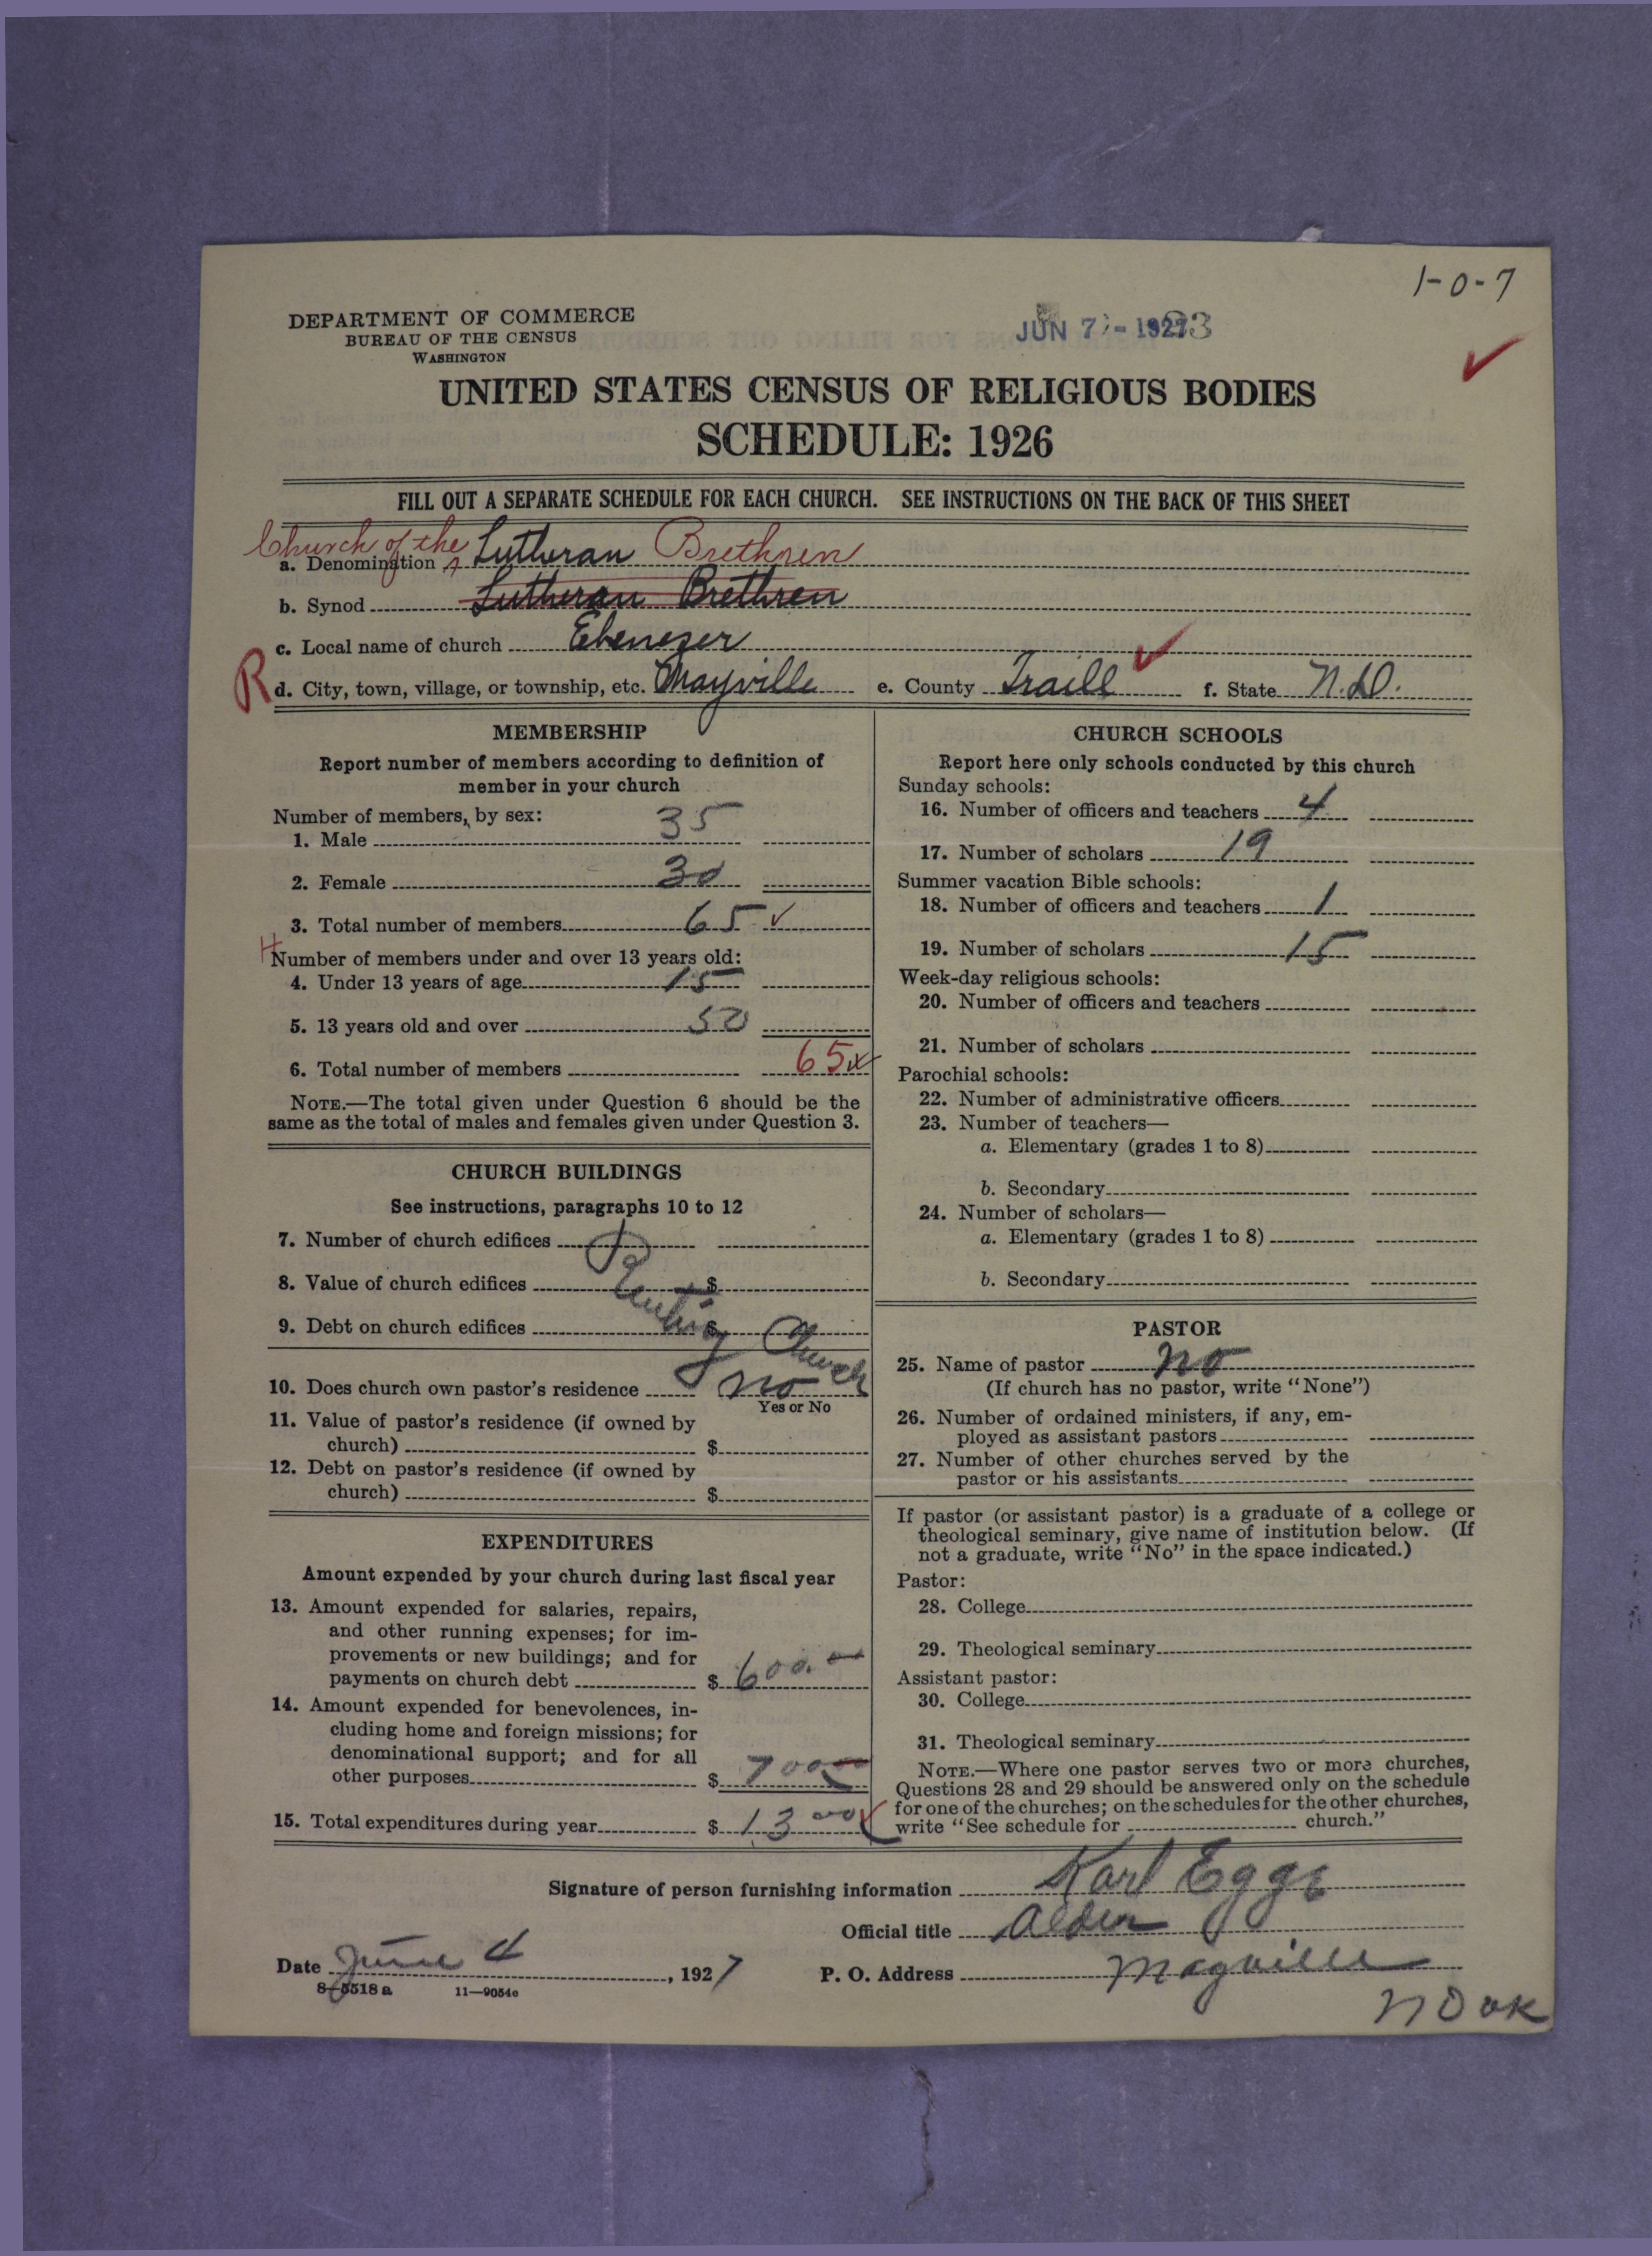 1-0-7
DEPARTMENT OF COMMERCE
BUREAU OF THE CENSUS
WASHINGTON
JUN 7 - 1927
UNITED STATES CENSUS OF RELIGIOUS BODIES
SCHEDULE: 1926
FILL OUT A SEPARATE SCHEDULE FOR EACH CHURCH. SEE INSTRUCTIONS ON THE BACK OF THIS SHEET
Church of the Lutheran Brethren
a. Denomination
b. Synod Lutheran Brethren
c. Local name of church Ebenezer
R d. City, town, village, or township, etc. Mayville e. County Traill f. State N.D.
MEMBERSHIP
Report number of members according to definition of
member in your church
Number of members, by sex:
1. Male 35
2. Female 30
3. Total number of members 65 ✓
Number of members under and over 13 years old:
4. Under 13 years of age 15
5. 13 years old and over 50
6. Total number of members 65
NOTE.—The total given under Question 6 should be the
same as the total of males and females given under Question 3.
CHURCH BUILDINGS
See instructions, paragraphs 10 to 12
7. Number of church edifices
8. Value of church edifices $
9. Debt on church edifices $
Renting Church
10. Does church own pastor's residence no
Yes or No
11. Value of pastor's residence (if owned by
church) $
12. Debt on pastor's residence (if owned by
church) $
EXPENDITURES
Amount expended by your church during last fiscal year
13. Amount expended for salaries, repairs,
and other running expenses; for im-
provements or new buildings; and for
payments on church debt $ 600.
14. Amount expended for benevolences, in-
cluding home and foreign missions; for
denominational support; and for all
other purposes $ 700
15. Total expenditures during year $ 1300
CHURCH SCHOOLS
Report here only schools conducted by this church
Sunday schools:
16. Number of officers and teachers 4
17. Number of scholars 19
Summer vacation Bible schools:
18. Number of officers and teachers 1
19. Number of scholars 15
Week-day religious schools:
20. Number of officers and teachers
21. Number of scholars
Parochial schools:
22. Number of administrative officers
23. Number of teachers—
a. Elementary (grades 1 to 8)
b. Secondary
24. Number of scholars—
a. Elementary (grades 1 to 8)
b. Secondary
PASTOR
25. Name of pastor no
(If church has no pastor, write "None")
26. Number of ordained ministers, if any, em-
ployed as assistant pastors
27. Number of other churches served by the
pastor or his assistants
If pastor (or assistant pastor) is a graduate of a college or
theological seminary, give name of institution below. (If
not a graduate, write "No" in the space indicated.)
Pastor:
28. College
29. Theological seminary
Assistant pastor:
30. College
31. Theological seminary
NOTE.—Where one pastor serves two or more churches,
Questions 28 and 29 should be answered only on the schedule
for one of the churches; on the schedules for the other churches,
write "See schedule for church."
Signature of person furnishing information Karl Eggs
Official title Alder
Date June 4, 1927 P. O. Address Mayville
8-5518 a 11—9054c
N Dak